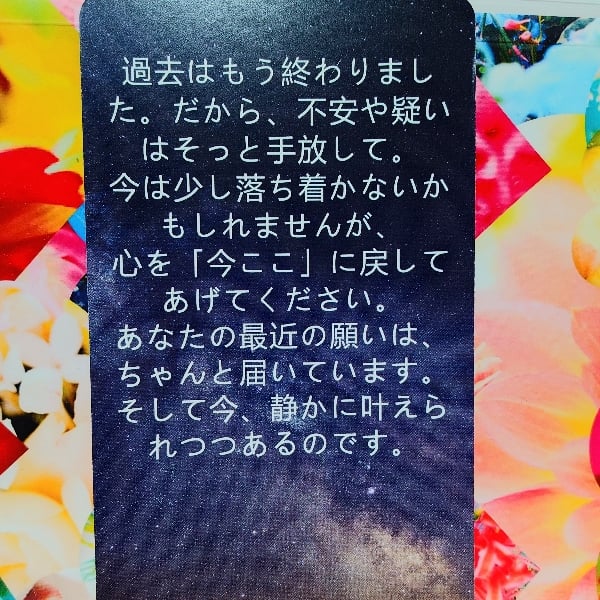 過去はもう終わりまし
た。だから、不安や疑い
はそっと手放して。
今は少し落ち着かないか
もしれませんが、
心を「今ここ」に戻して
あげてください。
あなたの最近の願いは、
ちゃんと届いています。
そして今、静かに叶えら
れつつあるのです。